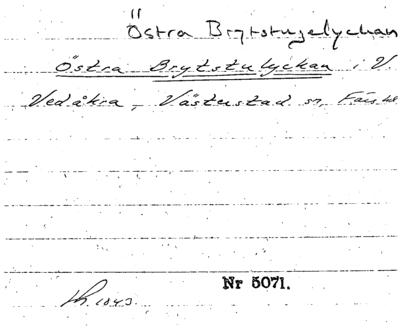 Östra Brytstugelyckan
Östra Brytstulyckan i V.
Vedåkra, Västerstad sn, Färs hd
Nr 5071.
1843.